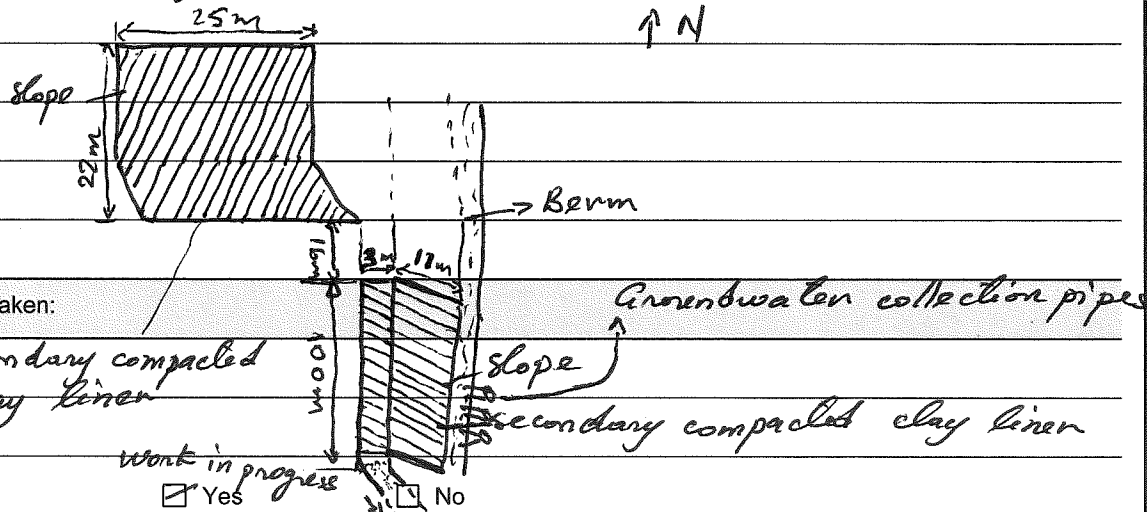 25m
↑ N
slope
22m
→ Berm
16m
3m
17m
aken:
Groundwater collection pipes
ndary compacted
ay liner
100m
slope
secondary compacted clay liner
work in progress
Yes
No